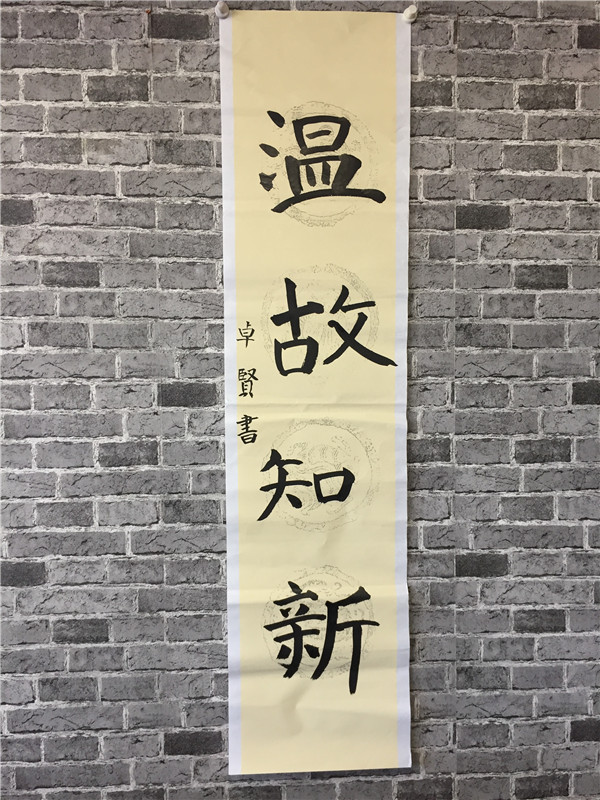 温故知新
卓賢書